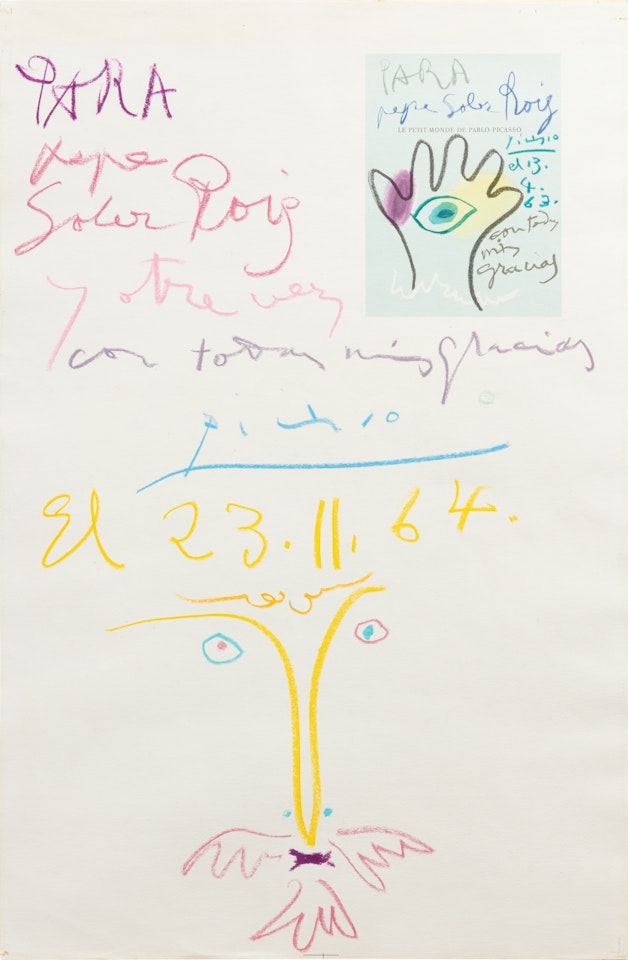 PARA
pepe
Soler Roig
y otra vez
con todas mis gracias
Picasso
El 23.11.64.
PARA
pepe Soler Roig
LE PETIT MONDE DE PABLO PICASSO
Picasso
el 13.
4.
63.
con todas
mis
gracias